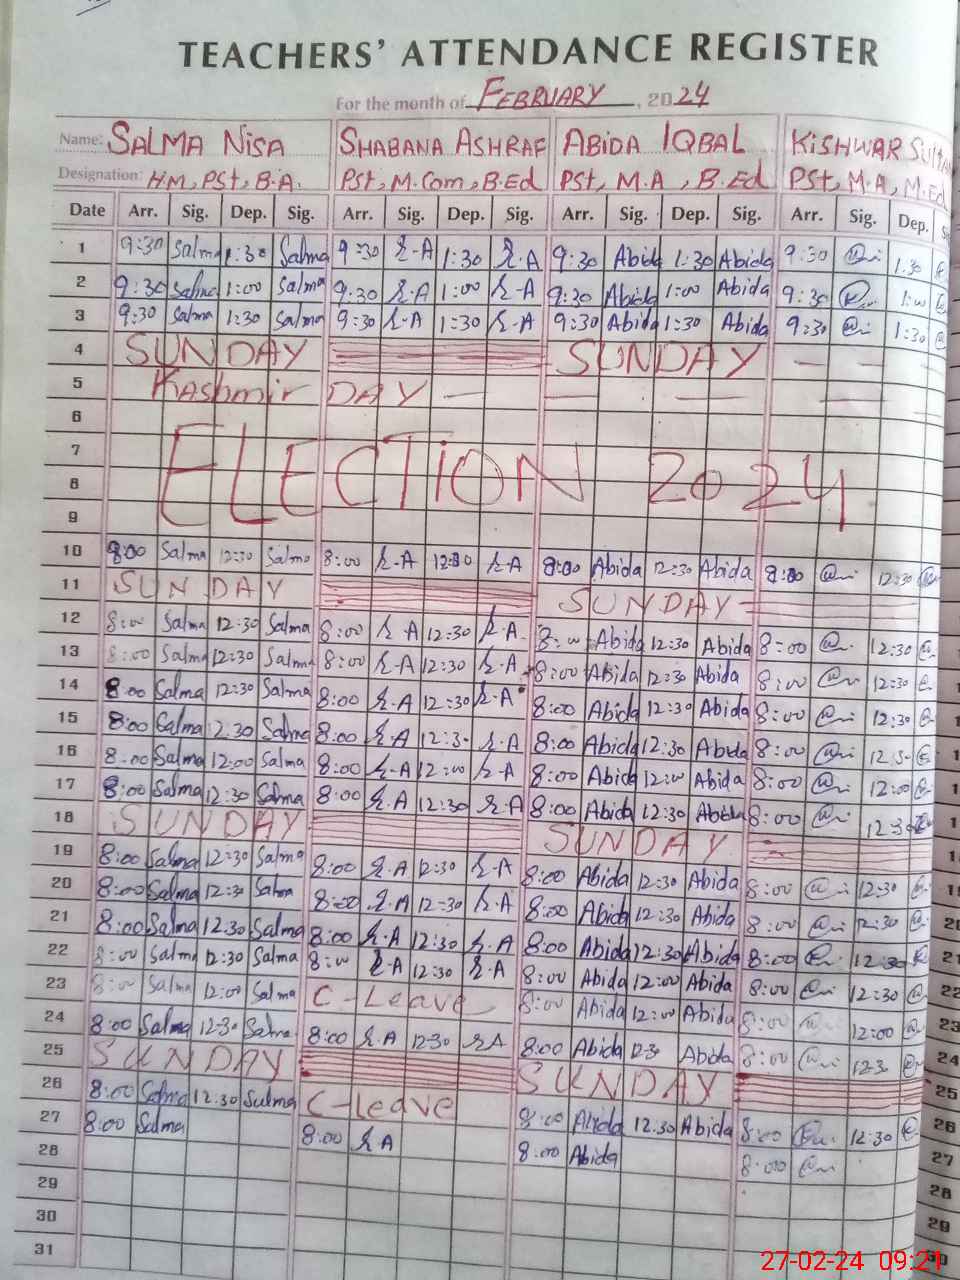 TEACHERS' ATTENDANCE REGISTER
For the month of FEBRUARY, 2024
Name: SALMA NISA SHABANA ASHRAF ABIDA IQBAL KISHWAR
Designation: HM, PST, B.A. PST, M.Com, B.Ed PST, M.A, B.Ed PST, M.A, M.Ed
Date Arr. Sig. Dep. Sig. Arr. Sig. Dep. Sig. Arr. Sig. Dep. Sig. Arr. Sig. Dep.
1 9:30 Salma 1:30 Salma 9:30 1:30 9:30 Abida 1:30 Abida 9:30 1:30
2 9:30 Salma 1:00 Salma 9:30 1:00 9:30 Abida 1:00 Abida 9:30 1:00
3 9:30 Salma 1:30 Salma 9:30 1:30 9:30 Abida 1:30 Abida 9:30 1:30
4 SUNDAY SUNDAY
5 Kashmir DAY
6
7
8 ELECTION 2024
9
10 8:00 Salma 12:30 Salma 8:00 12:30 8:00 Abida 12:30 Abida 8:00 12:30
11 SUNDAY SUNDAY
12 8:00 Salma 12:30 Salma 8:00 12:30 8:00 Abida 12:30 Abida 8:00 12:30
13 8:00 Salma 12:30 Salma 8:00 12:30 8:00 Abida 12:30 Abida 8:00 12:30
14 8:00 Salma 12:30 Salma 8:00 12:30 8:00 Abida 12:30 Abida 8:00 12:30
15 8:00 Salma 12:30 Salma 8:00 12:30 8:00 Abida 12:30 Abida 8:00 12:30
16 8:00 Salma 12:00 Salma 8:00 12:00 8:00 Abida 12:00 Abida 8:00 12:00
17 8:00 Salma 12:30 Salma 8:00 12:30 8:00 Abida 12:30 Abida 8:00 12:30
18 SUNDAY SUNDAY
19 8:00 Salma 12:30 Salma 8:00 12:30 8:00 Abida 12:30 Abida 8:00 12:30
20 8:00 Salma 12:30 Salma 8:00 12:30 8:00 Abida 12:30 Abida 8:00 12:30
21 8:00 Salma 12:30 Salma 8:00 12:30 8:00 Abida 12:30 Abida 8:00 12:30
22 8:00 Salma 12:30 Salma 8:00 12:30 8:00 Abida 12:00 Abida 8:00 12:30
23 8:00 Salma 12:00 Salma C-Leave 8:00 Abida 12:00 Abida 8:00 12:00
24 8:00 Salma 12:30 Salma 8:00 12:30 8:00 Abida 12:30 Abida 8:00 12:30
25 SUNDAY SUNDAY
26 8:00 Salma 12:30 Salma C-Leave 8:00 Abida 12:30 Abida 8:00 12:30
27 8:00 Salma 8:00 8:00 Abida 8:00
28
29
30
31
27-02-24 09:21